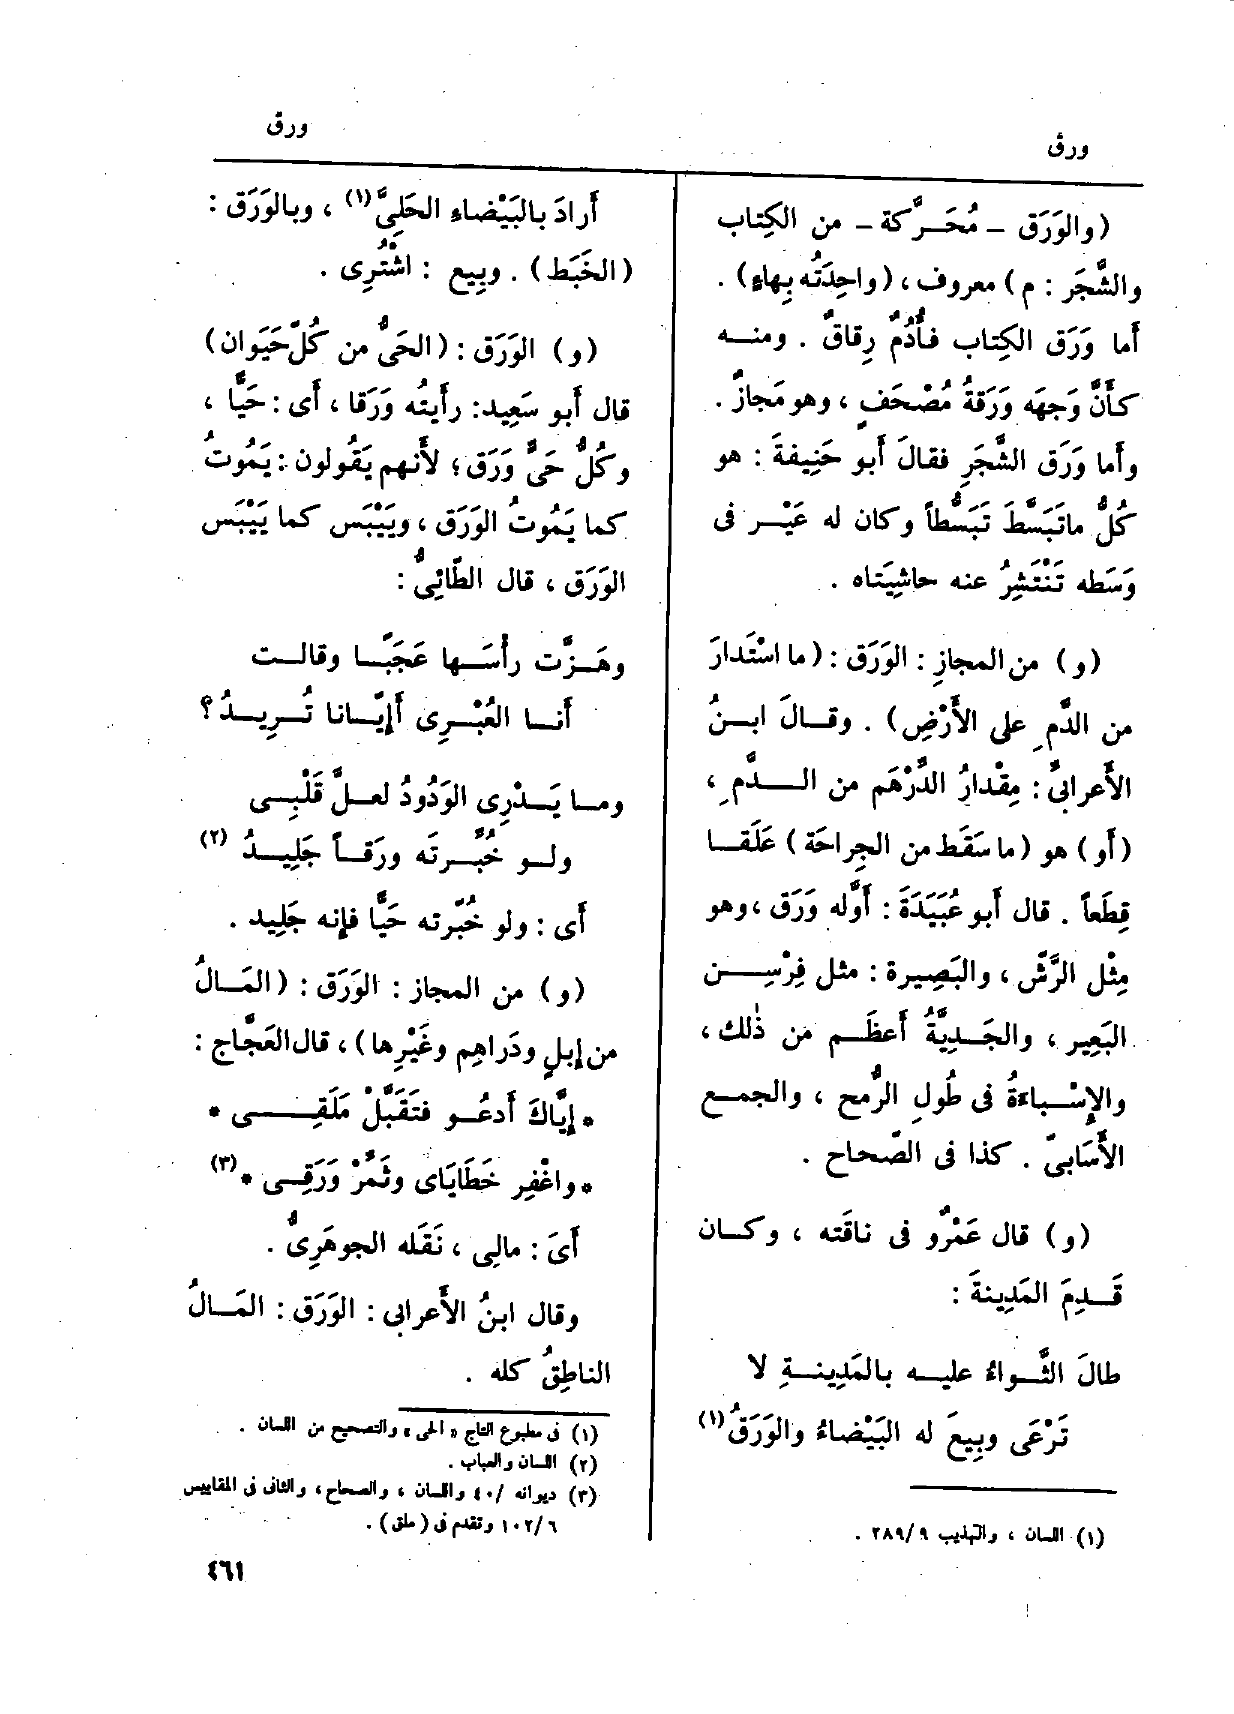 ورق
ورق
(والوَرَق – مُحَرَّكة – من الكِتاب
والشَّجَر : م) معروف ، (واحِدَتُه بِهاءٍ) .
أما وَرَق الكِتاب فأُدُمٌ رِقاقٌ . ومنه
كأَنَّ وَجهَه وَرَقةُ مُصْحَفٍ ، وهو مَجازٌ .
وأما وَرَق الشَّجَرِ فقالَ أَبو حَنِيفةَ : هو
كُلُّ ماتَبَسَّطَ تَبَسُّطاً وكان له عَيْر فى
وَسَطه تَنْتَشِرُ عنه حاشِيَتاه .
(و) من المجازِ : الوَرَق : (ما اسْتَدارَ
من الدَّمِ على الأَرْضِ) . وقالَ ابنُ
الأَعرابىّ : مِقْدارُ الدِّرْهَم من الدَّمِ ،
(أَو) هو (ما سَقَط من الجِراحَة) عَلَقا
قِطَعاً . قال أَبو عُبَيَدَةَ : أَوَّله وَرَق ، وهو
مِثْل الرَّشّ ، والبَصِيرة : مثل فِرْسِن
البَعِير ، والجَدِيَّةُ أَعظَم من ذٰلك ،
والإِسْباءةُ فى طُولِ الرُّمح ، والجمع
الأَسَابىّ . كذا فى الصّحاح .
(و) قال عَمْرٌو فى ناقَته ، وكان
قَدِمَ المَدِينةَ :
طالَ الثَّواءُ عليه بالمَدِينةِ لا
تَرْعَى وبِيعَ له البَيْضاءُ والوَرَقُ (١)
(١) اللسان ، والتهذيب ٢٨٩/٩ .
أَرادَ بالبَيْضاء الحَلِىَّ (١) ، وبالوَرَق :
(الخَبَط) . وبِيع : اشْتُرِى .
(و) الوَرَق : (الحَىُّ من كُلّ حَيَوان)
قال أَبو سَعِيد: رأَيتُه وَرَقا ، أَى : حَيًّا ،
وكُلُّ حَىٍّ وَرَق ؛ لأَنهم يَقُولون : يَمُوتُ
كما يَمُوتُ الوَرَق ، ويَيْبَس كما يَيْبَس
الوَرَق ، قال الطّائِىُّ :
وهَزَّت رأْسَها عَجَبًا وقالت
أَنا العُبْرِى أَإِيّانا تُرِيدُ ؟
وما يَدْرِى الوَدُودُ لعلَّ قَلْبِى
ولو خُبِّرتَه ورَقاً جَلِيدُ (٢)
أَى : ولو خُبّرته حَيًّا فإنه جَلِيد .
(و) من المجاز : الوَرَق : (المَالُ
من إِبلٍ ودَراهِم وغَيْرِها) ، قال العَجَّاج :
* إِيَّاكَ أَدعُو فتَقَبَّلْ مَلَقِى *
* واغْفِر خَطَايَاى وثَمِّرْ وَرَقِى * (٣)
أَىَ : مالِى ، نَقَله الجوهَرِىُّ .
وقال ابنُ الأَعرابى : الوَرَق : المَالُ
الناطِقُ كله .
(١) فى مطبوع التاج « الحى » والتصحيح من اللسان .
(٢) اللسان والعباب .
(٣) ديوانه /٤٠ واللسان ، والصحاح ، والثانى فى المقاييس
١٠٢/٦ وتقدم فى (ملق) .
٤٦١